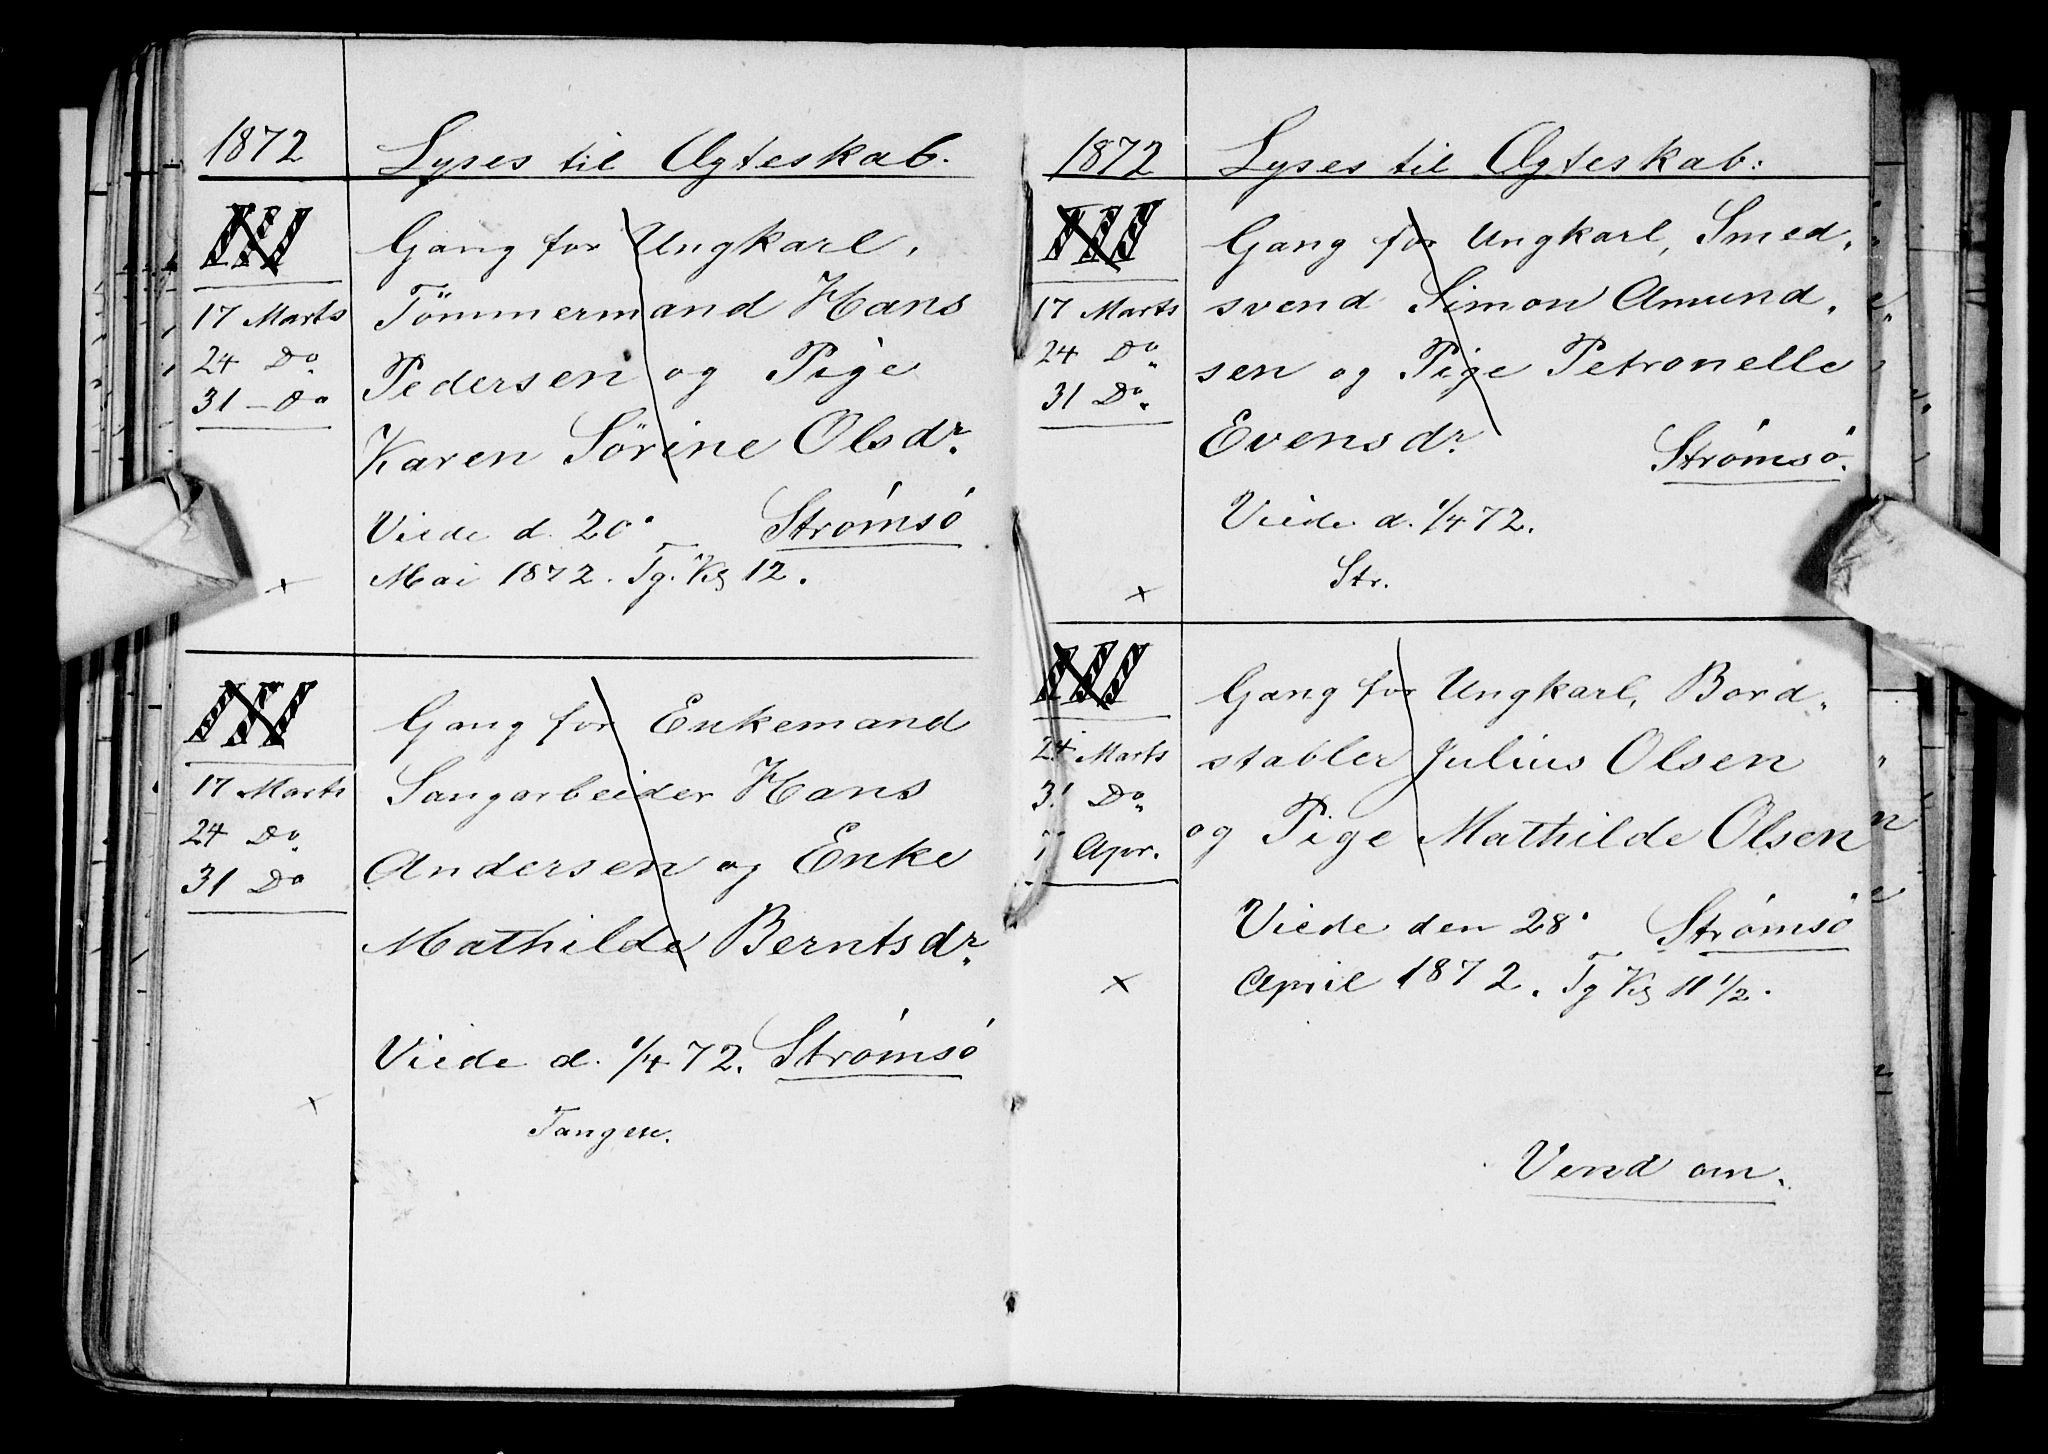 1872
Lyses til Ægteskab.
III
Gang for Ungkarl,
Tömmermand Hans
Pedersen og Pige
Karen Sörine Olsdr.
17 Marts
24 Do
31 – Do
Viede d. 20'
Strömsö
Mai 1872. Tg. Kg 12.
x
III
Gang for Enkemand
Saugarbeider Hans
Andersen og Enke
Mathilde Berntsdr.
17 Marts
24 Do
31 Do
Viede d. 1/4 72. Strömsö
x
Tangen.
1872
Lyses til Ægteskab:
III
Gang for Ungkarl, Smed„
svend Simon Amund„
sen og Pige Petronelle
Evensdr.
17 Marts
24 Do
31 Do
Strömsö.
Viede d. 1/4 72.
Str.
x
III
Gang for Ungkarl, Bord„
stabler Julius Olsen
og Pige Mathilde Olsen
24 Marts
31 Do
7 Apr.
Viede den 28' Strömsö
April 1872. Tg Kg 11 1/2.
x
Vend om.